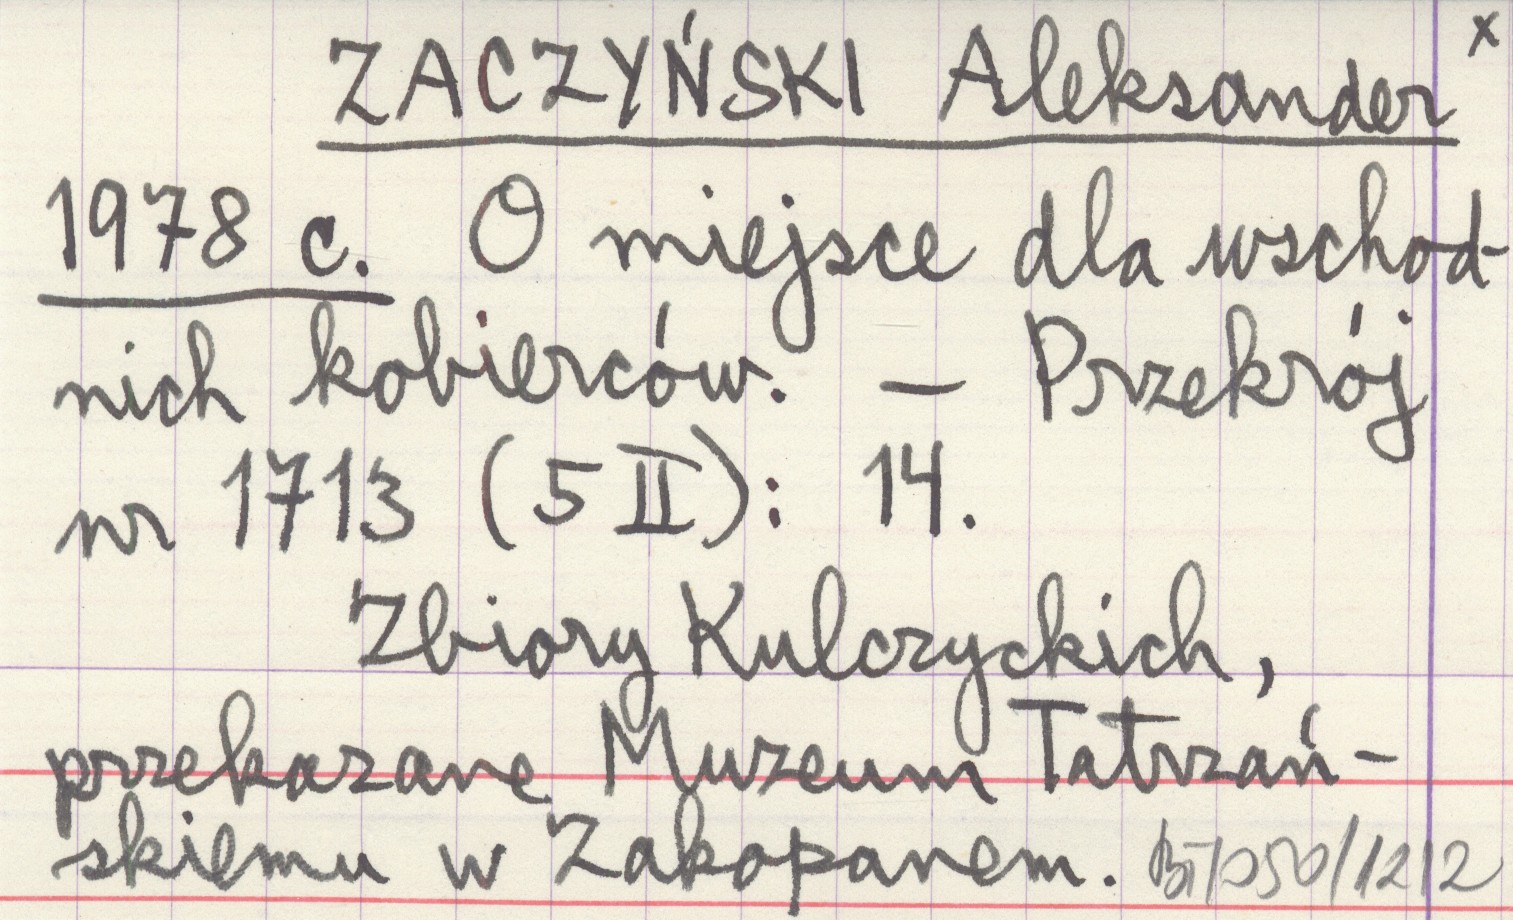 x
ZACZYŃSKI Aleksander
1978 c. O miejsce dla wschod-
nich kobierców. — Przekrój
nr 1713 (5 II): 14.
Zbiory Kulczyckich,
przekazane Muzeum Tatrzań-
skiemu w Zakopanem.